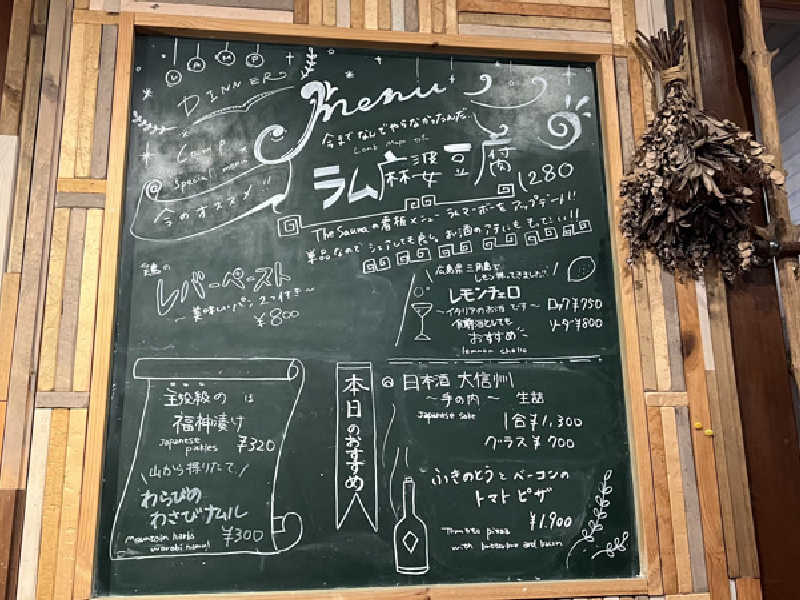 DINNER
menu
Special menu
今のオススメ!!
今までなんでやらなかったんだ..
Lamb Mapo tofu
ラム麻婆豆腐
1280
The Saunaの看板メニュー ラムマーボーをアップデート!!
単品なので シェアしても良し。お酒のアテにももってこい!!
レバーペースト
¥800
広島県 三角島で
レモン狩ってきました!
レモンチェロ
〜イタリアのお酒です〜
食後酒としても
おすすめ
ロック¥750
ソーダ¥800
主役級の
福神漬け
Japanese pickles ¥320
山から採りたて!
わらびの
わさびナムル
¥300
本日のおすすめ
日本酒 大信州
〜手の内〜 生詰
Japanese sake
1合¥1,300
グラス¥700
ふきのとうとベーコンの
トマトピザ
¥1,900